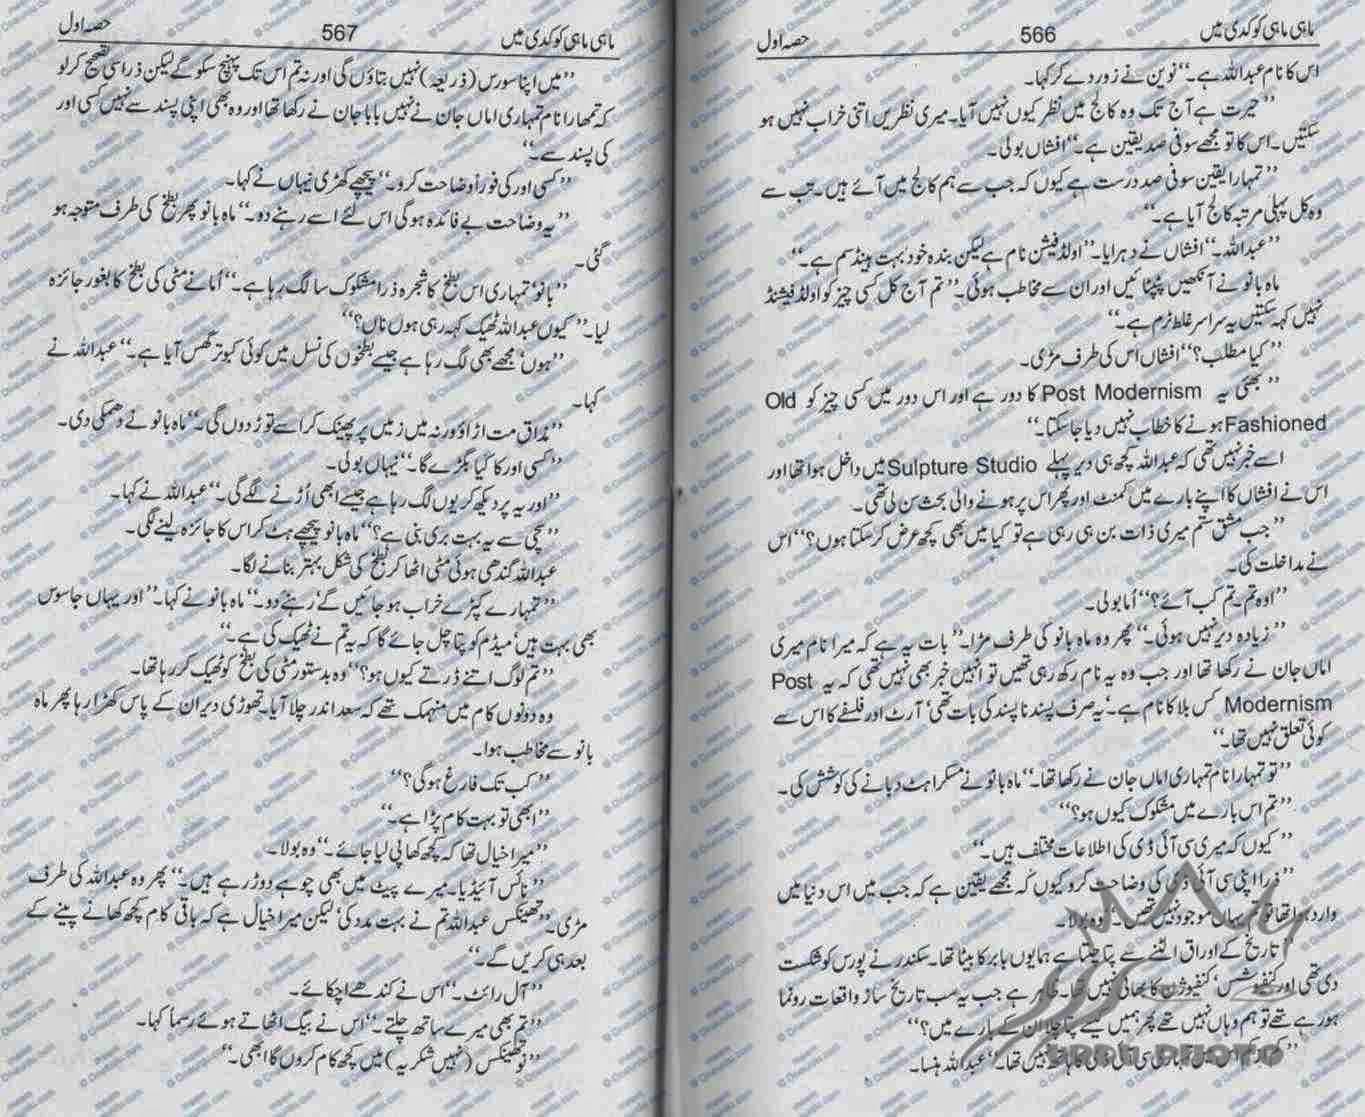 ماہی ماہی کوکدی میں 566 حصہ اول
اس کا نام عبداللہ ہے۔‘‘ نوین نے زور دے کر کہا۔
’’حیرت ہے آج تک وہ کالج میں نظر کیوں نہیں آیا۔ میری نظریں اتنی خراب نہیں ہو
سکتیں۔ اس کا تو مجھے سوفی صد یقین ہے۔‘‘ افشاں بولی۔
’’تمہارا یقین سوفی صد درست ہے کیوں کہ جب سے ہم کالج میں آئے ہیں۔ تب سے
وہ کل پہلی مرتبہ کالج آیا ہے۔‘‘
’’عبداللہ۔‘‘ افشاں نے دہرایا۔ ’’اولڈ فیشن نام ہے لیکن بندہ خود بہت ہینڈسم ہے۔‘‘
ماہ بانو نے آنکھیں پٹپٹائیں اور ان سے مخاطب ہوئی۔ ’’تم آج کل کسی چیز کو اولڈ فیشنڈ
نہیں کہہ سکتیں یہ سراسر غلط ٹرم ہے۔‘‘
’’کیا مطلب؟‘‘ افشاں اس کی طرف مڑی۔
’’بھئی یہ Post Modernism کا دور ہے اور اس دور میں کسی چیز کو Old
Fashioned ہونے کا خطاب نہیں دیا جا سکتا۔‘‘
اسے خبر نہیں تھی کہ عبداللہ کچھ ہی دیر پہلے Sulpture Studio میں داخل ہوا تھا اور
اس نے افشاں کا اپنے بارے میں کمنٹ اور پھر اس پر ہونے والی بحث سن لی تھی۔
’’جب مشق ستم میری ذات بن ہی رہی ہے تو کیا میں بھی کچھ عرض کر سکتا ہوں؟‘‘ اس
نے مداخلت کی۔
’’اوہ تم۔ تم کب آئے؟‘‘ اُما بولی۔
’’زیادہ دیر نہیں ہوئی۔‘‘ پھر وہ ماہ بانو کی طرف مڑا۔ ’’بات یہ ہے کہ میرا نام میری
اماں جان نے رکھا تھا اور جب وہ یہ نام رکھ رہی تھیں تو انہیں خبر بھی نہیں تھی کہ یہ Post
Modernism کس بلا کا نام ہے۔ ’یہ صرف پسند ناپسند کی بات تھی‘ آرٹ اور فلسفے کا اس سے
کوئی تعلق نہیں تھا۔‘‘
’’تو تمہارا نام تمہاری اماں جان نے رکھا تھا۔‘‘ ماہ بانو نے مسکراہٹ دبانے کی کوشش کی۔
’’تم اس بارے میں مشکوک کیوں ہو؟‘‘
’’کیوں کہ میری سی آئی ڈی کی اطلاعات مختلف ہیں۔‘‘
’’ذرا اپنی سی آئی ڈی کی وضاحت کرو کیوں کہ مجھے یقین ہے کہ جب میں اس دنیا میں
وارد ہوا تھا تو تم یہاں موجود نہیں تھیں۔‘‘ وہ بولا۔
’’تاریخ کے اوراق الٹنے سے پتا چلتا ہے ہمایوں بابر کا بیٹا تھا۔ سکندر نے پورس کو شکست
دی تھی اور کنفیوشس‘ کنفیوژن کا بھائی نہیں تھا۔ ظاہر ہے جب یہ سب تاریخ ساز واقعات رونما
ہو رہے تھے تو ہم وہاں نہیں تھے پھر ہمیں کیسے پتا چلا ان کے بارے میں؟‘‘
سی آئی ڈی کا ہاتھ نہیں تھا۔‘‘ عبداللہ ہنسا۔
ماہی ماہی کوکدی میں 567 حصہ اول
’’میں اپنا سورس (ذریعہ) نہیں بتاؤں گی اور نہ تم اس تک پہنچ سکو گے لیکن ذرا سی تصحیح کر لو
کہ تمھارا نام تمہاری اماں جان نے نہیں بابا جان نے رکھا تھا اور وہ بھی اپنی پسند سے نہیں کسی اور
کی پسند سے۔‘‘
’’کسی اور کی فوراً وضاحت کرو۔‘‘ پیچھے کھڑی نیہاں نے کہا۔
’’یہ وضاحت بے فائدہ ہوگی اس لئے اسے رہنے دو۔‘‘ ماہ بانو پھر بطخ کی طرف متوجہ ہو
گئی۔
’’بانو‘ تمہاری اس بطخ کا شجرہ ذرا مشکوک سا لگ رہا ہے۔‘‘ اُما نے مٹی کی بطخ کا بغور جائزہ
لیا۔ ’’کیوں عبداللہ ٹھیک کہہ رہی ہوں ناں؟‘‘
’’ہوں‘ مجھے بھی لگ رہا ہے جیسے بطخوں کی نسل میں کوئی کبوتر گھس آیا ہے۔‘‘ عبداللہ نے
کہا۔
’’مذاق مت اڑاؤ ورنہ میں زمین پر پھینک کر اسے توڑ دوں گی۔‘‘ ماہ بانو نے دھمکی دی۔
’’کسی اور کا کیا بگڑے گا۔‘‘ نیہاں بولی۔
’’اور یہ پر دیکھ کر یوں لگ رہا ہے جیسے ابھی اُڑنے لگے گی۔‘‘ عبداللہ نے کہا۔
’’سچی سے یہ بہت بری بنی ہے؟‘‘ ماہ بانو پیچھے ہٹ کر اس کا جائزہ لینے لگی۔
عبداللہ گندھی ہوئی مٹی اٹھا کر بطخ کی شکل بہتر بنانے لگا۔
’’تمہارے کپڑے خراب ہو جائیں گے‘ رہنے دو۔‘‘ ماہ بانو نے کہا۔ ’’اور یہاں جاسوس
بھی بہت ہیں‘ میڈم کو پتا چل جائے گا کہ یہ تم نے ٹھیک کی ہے۔‘‘
’’تم لوگ اتنے ڈرتے کیوں ہو؟‘‘ وہ بدستور مٹی کی بطخ کو ٹھیک کر رہا تھا۔
وہ دونوں کام میں منہمک تھے کہ سعد اندر چلا آیا۔ تھوڑی دیر ان کے پاس کھڑا رہا پھر ماہ
بانو سے مخاطب ہوا۔
’’کب تک فارغ ہوگی؟‘‘
’’ابھی تو بہت کام پڑا ہے۔‘‘
’’میرا خیال تھا کہ کچھ کھا پی لیا جائے۔‘‘ وہ بولا۔
’’نائس آئیڈیا۔ میرے پیٹ میں بھی چوہے دوڑ رہے ہیں۔‘‘ پھر وہ عبداللہ کی طرف
مڑی۔ ’’تھینکس عبداللہ تم نے بہت مدد کی‘ لیکن میرا خیال ہے کہ باقی کام کچھ کھانے پینے کے
بعد ہی کریں گے۔‘‘
’’آل رائٹ۔‘‘ اس نے کندھے اچکائے۔
’’تم بھی میرے ساتھ چلتے۔‘‘ اس نے بیگ اٹھاتے ہوئے رسماً کہا۔
’’نو تھینکس (نہیں شکریہ) میں کچھ کام کروں گا ابھی۔‘‘